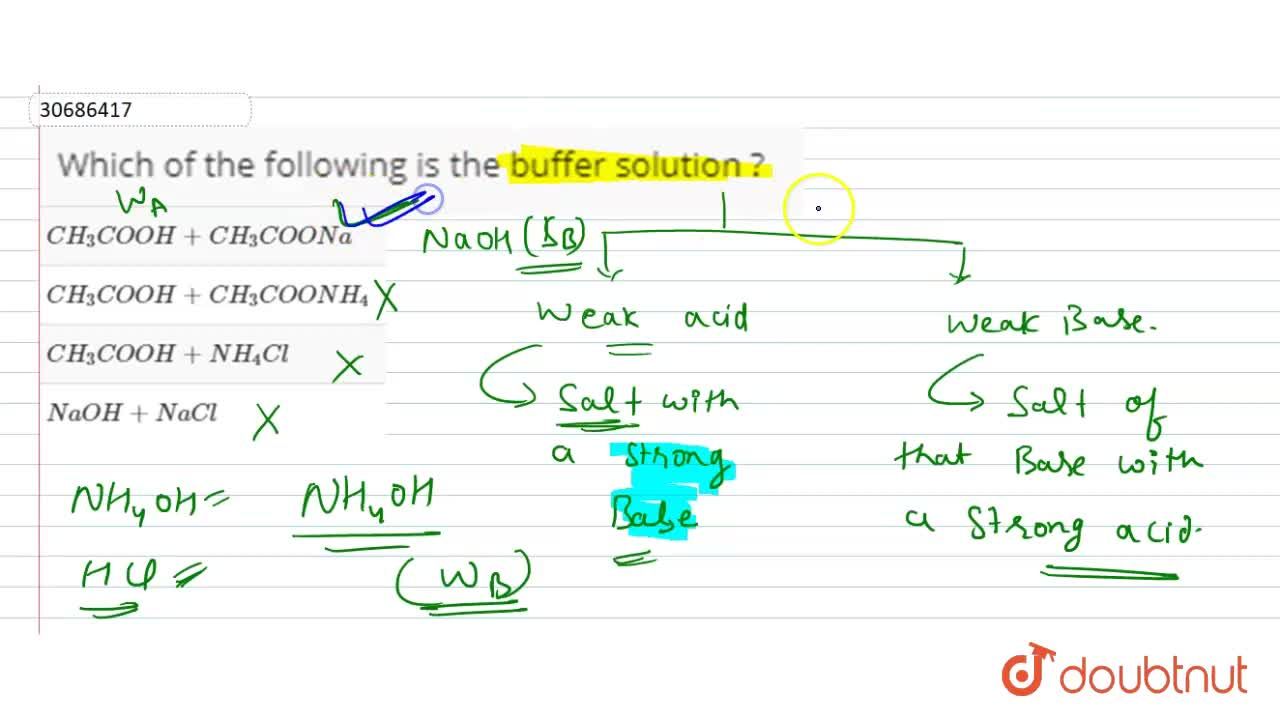 30686417
Which of the following is the buffer solution ?
WA
CH₃COOH + CH₃COONa
CH₃COOH + CH₃COONH₄ X
CH₃COOH + NH₄Cl X
NaOH + NaCl X
NaOH (SB)
Weak acid
Salt with
a strong
Base
Weak Base.
Salt of
that Base with
a strong acid.
NH₄OH =
HCl =
NH₄OH
(WB)
doubtnut